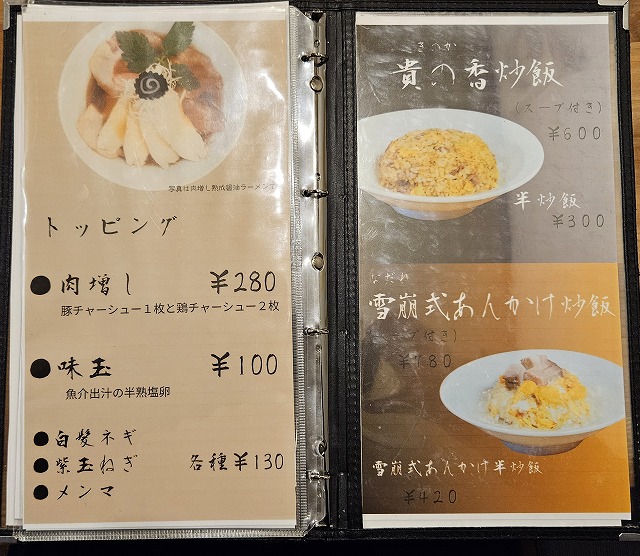 写真は肉増し熟成醤油ラーメンです
トッピング
●肉増し ¥280
豚チャーシュー1枚と鶏チャーシュー2枚
●味玉 ¥100
魚介出汁の半熟塩卵
●白髪ネギ
●紫玉ねぎ 各種¥130
●メンマ
きのか
貴の香炒飯
(スープ付き)
¥600
半炒飯
¥300
なだれ
雪崩式あんかけ炒飯
(スープ付き)
雪崩式あんかけ半炒飯
¥420